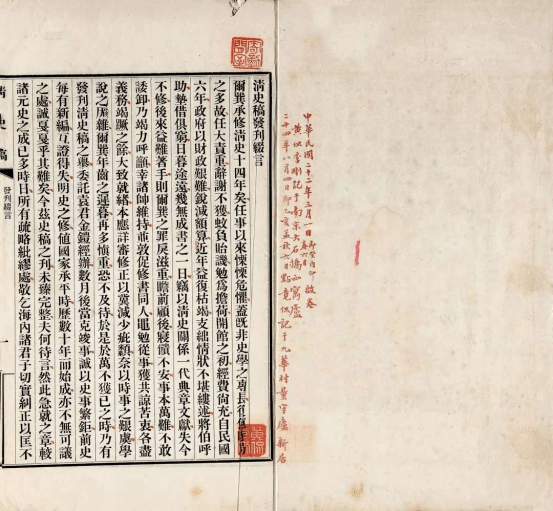 中華民國二十二年三月一日
清史稿發刊綴言
爾巽承修清史十四年矣任事以來慄慄危懼蓋既非史學之專長
之多故任大責重辭謝不獲蚊負貽譏勉爲擔荷開館之初經費尚充自民國
六年政府以財政艱難銳減額算近年益復枯竭支絀情狀不堪縷述將伯呼
助墊借俱窮日暮途遠幾無成書之一日竊以清史關係一代典章文獻失今
不修後來益難著手則爾巽之罪戾滋重瞻前顧後寢饋不安事本萬難不敢
諉卸乃竭力呼籲幸諸帥維持並敦促修書同人黽勉從事獲共諒苦衷各盡
義務竭蹶之餘大致就緒本應詳審修正以冀減少疵纇奈以時事之艱虞學
說之厖雜爾巽年齒之遲暮再多慎重恐不及待於是於萬不獲已之時乃有
發刊清史稿之舉委託袁君金鎧經辦數月後當克竣事誠以史事繁鉅前史
每有新編互證得失明史之修値國家承平時歷數十年而始成亦不無可議
之處誠戛戛乎其難矣今茲史稿之刊未臻完整夫何待言然此急就之章較
諸元史之成已多時日所有疏略紕繆處敬乞海內諸君子切實糾正以匡不
清史稿
發刊綴言
一